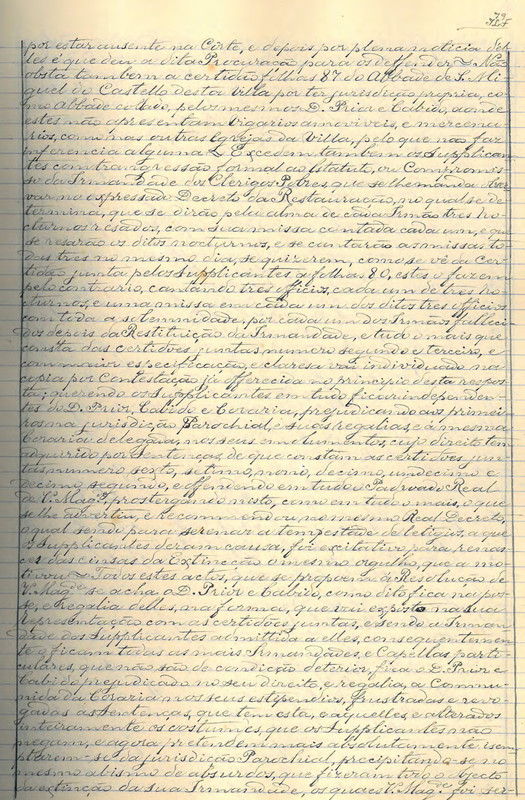 72
por estar ausente na Côrte, e depois por plena noticia del-
les é que deu a dita Procuração para os deffender. Nem
obsta tambem a certidão folhas 87 do Abbade de S. Mi-
guel do Castello desta Villa por ter jurisdição propria, co-
mo Abbade collado, pelos mesmos D. Prior e Cabido, aonde
estes não apresentam Vigarios amoviveis, e mercena-
rios, como nas outras Igrejas da Villa, pelo que não faz
inferencia alguma. Excedem tambem os Supplican-
tes com transgressão formal ao Estatuto, ou Compromis-
so da Irmandade dos Clerigos Pobres que se lhe manda obser-
var no expressado Decreto da Restauração, no qual se de-
termina, que se dirão pela alma de cada Irmão tres no-
cturnos resados, com sua missa cantada cada um, e que
se resarão os ditos nocturnos, e se cantarão as missas to-
das tres no mesmo dia, se quizerem, como se vê da cer-
tidão junta pelos Supplicantes a folha 80, estes o fazem
pelo contrario, cantando tres officios, cada um de tres no-
cturnos, e uma missa em cada um dos ditos tres officios
com toda a solemnidade, por cada um dos Irmãos falleci-
dos depois da Restituição da Irmandade, e tudo o mais que
consta das certidões juntas, numero segundo e terceiro, e
com maior especificação, e claresa vai individuado na
copia por Contestação já offerecida no principio desta respos-
ta; querendo os Supplicantes em tudo ficar independen-
tes do D. Prior, Cabido e Coraria, prejudicando aos primei-
ros na jurisdição Parochial, e suas regalias, e á mesma
Coraria delegada, nos seus emolumentos, cujo direito tem
adquerido por sentenças, de que constam as certidões jun-
tas numero sexto, setimo, nono, decimo, undecimo e
decimo segundo, e offendendo em tudo o Padroado Real
de V. Mag.de, prostergando nisto, como em tudo o mais, o que
se lhe advertiu, e recommendou no mesmo Real Decreto,
o qual sendo para serenar a tempestade de letigios, a que
os Supplicantes deram causa, foi excitativo para renas-
cer das cinsas da Extincção o mesmo orgulho, que a mo-
tivou. Todos estes actos, que se propõem á Resolução de
V. Mag.de se acha o D. Prior e Cabido, como dito fica na pos-
se, e Regalia delles, na forma, que vai exposto na sua
Representação com as certidões juntas, e sendo a Irman-
dade dos Supplicantes admittida a elles, consequentemen-
te o ficam todas as mais Irmandades, e Capellas parti-
culares, que não são de condição deterior, fica o D. Prior e
Cabido prejudicado no seu direito, e regalia, a Commu-
nidade da Coraria nos seus estipendios, frustradas e revo-
gadas as Sentenças, que tem esta, e aquelles, e alterados
inteiramente os costumes, que os Supplicantes não
negam, e agora pretendem mais absolutamente isem-
ptarem-se da jurisdição Parochial, precipitando-se no
mesmo abismo de absurdos, que fizeram todo o objecto
da extincção da sua Irmandade, os quaes V. Mag.de foi ser-